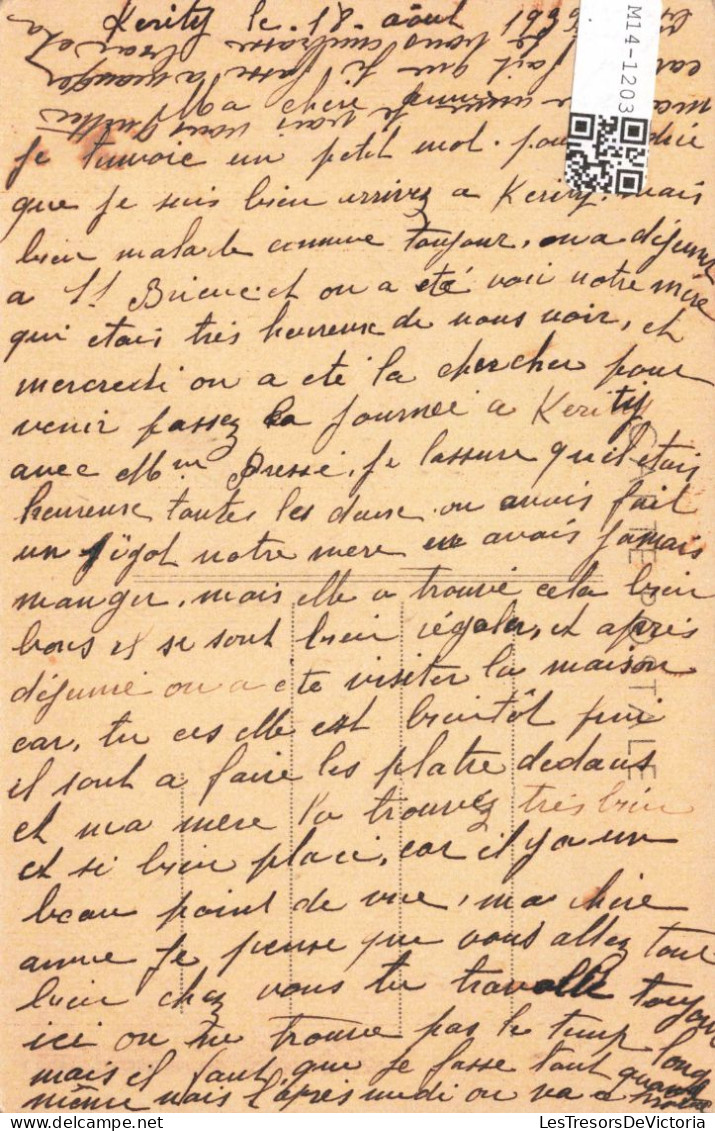 Kerity le 18 août 193
Ma chère
je tenvoie un petit mot pour
que je suis bien arrivez a Kerity mais
bien malade comme toujour, on a déjeuné
a St Brieuc et on a été voir notre mère
qui etais très heureuse de nous voir, et
mercredi on a ete la chercher pour
venir passez la journee a Kerity
avec Mme Pressé, je lassure quil etais
heureuse toutes les deux on avais fait
un gigot notre mere en avais jamais
manger, mais elle a trouvé cela bien
bons et se sont bien régaler, et après
déjeuné on a ete visiter la maison
car, tu ces elle est bientôt fini
il sont a faire les platre dedans
et ma mere la trouvez très bien
et si bien placé, car il y a un
beau point de vue, ma chère
amie je pense que vous allez tout
bien chez vous tu travaille toujour
ici on ne trouve pas le temp long
mais il faut que je fasse tout quand
même mais l'après midi on va a
je vais vous quitter
car il fait que je fasse a manger
je vous embrasse
CARTE POSTALE
M14-1203
LesTresorsDeVictoria